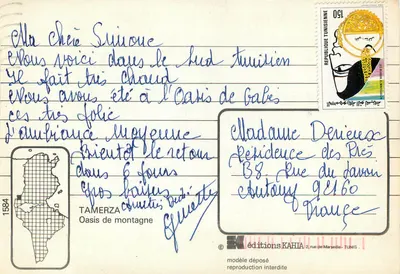 Ma chère Simone
Nous voici dans le Sud tunisien
Il fait très chaud
Nous avons été à l'Oasis de Gabès
ces très jolie
l'ambiance moyenne
Bientôt le retour
dans 6 jours
Gros baisers
Ginette
Madame Derieux
Résidence des Prés
B8, Rue du Savoir
Antony 92160
France
REPUBLIQUE TUNISIENNE
150
1584
TAMERZA
Oasis de montagne
éditions KAHIA
modèle déposé
reproduction interdite